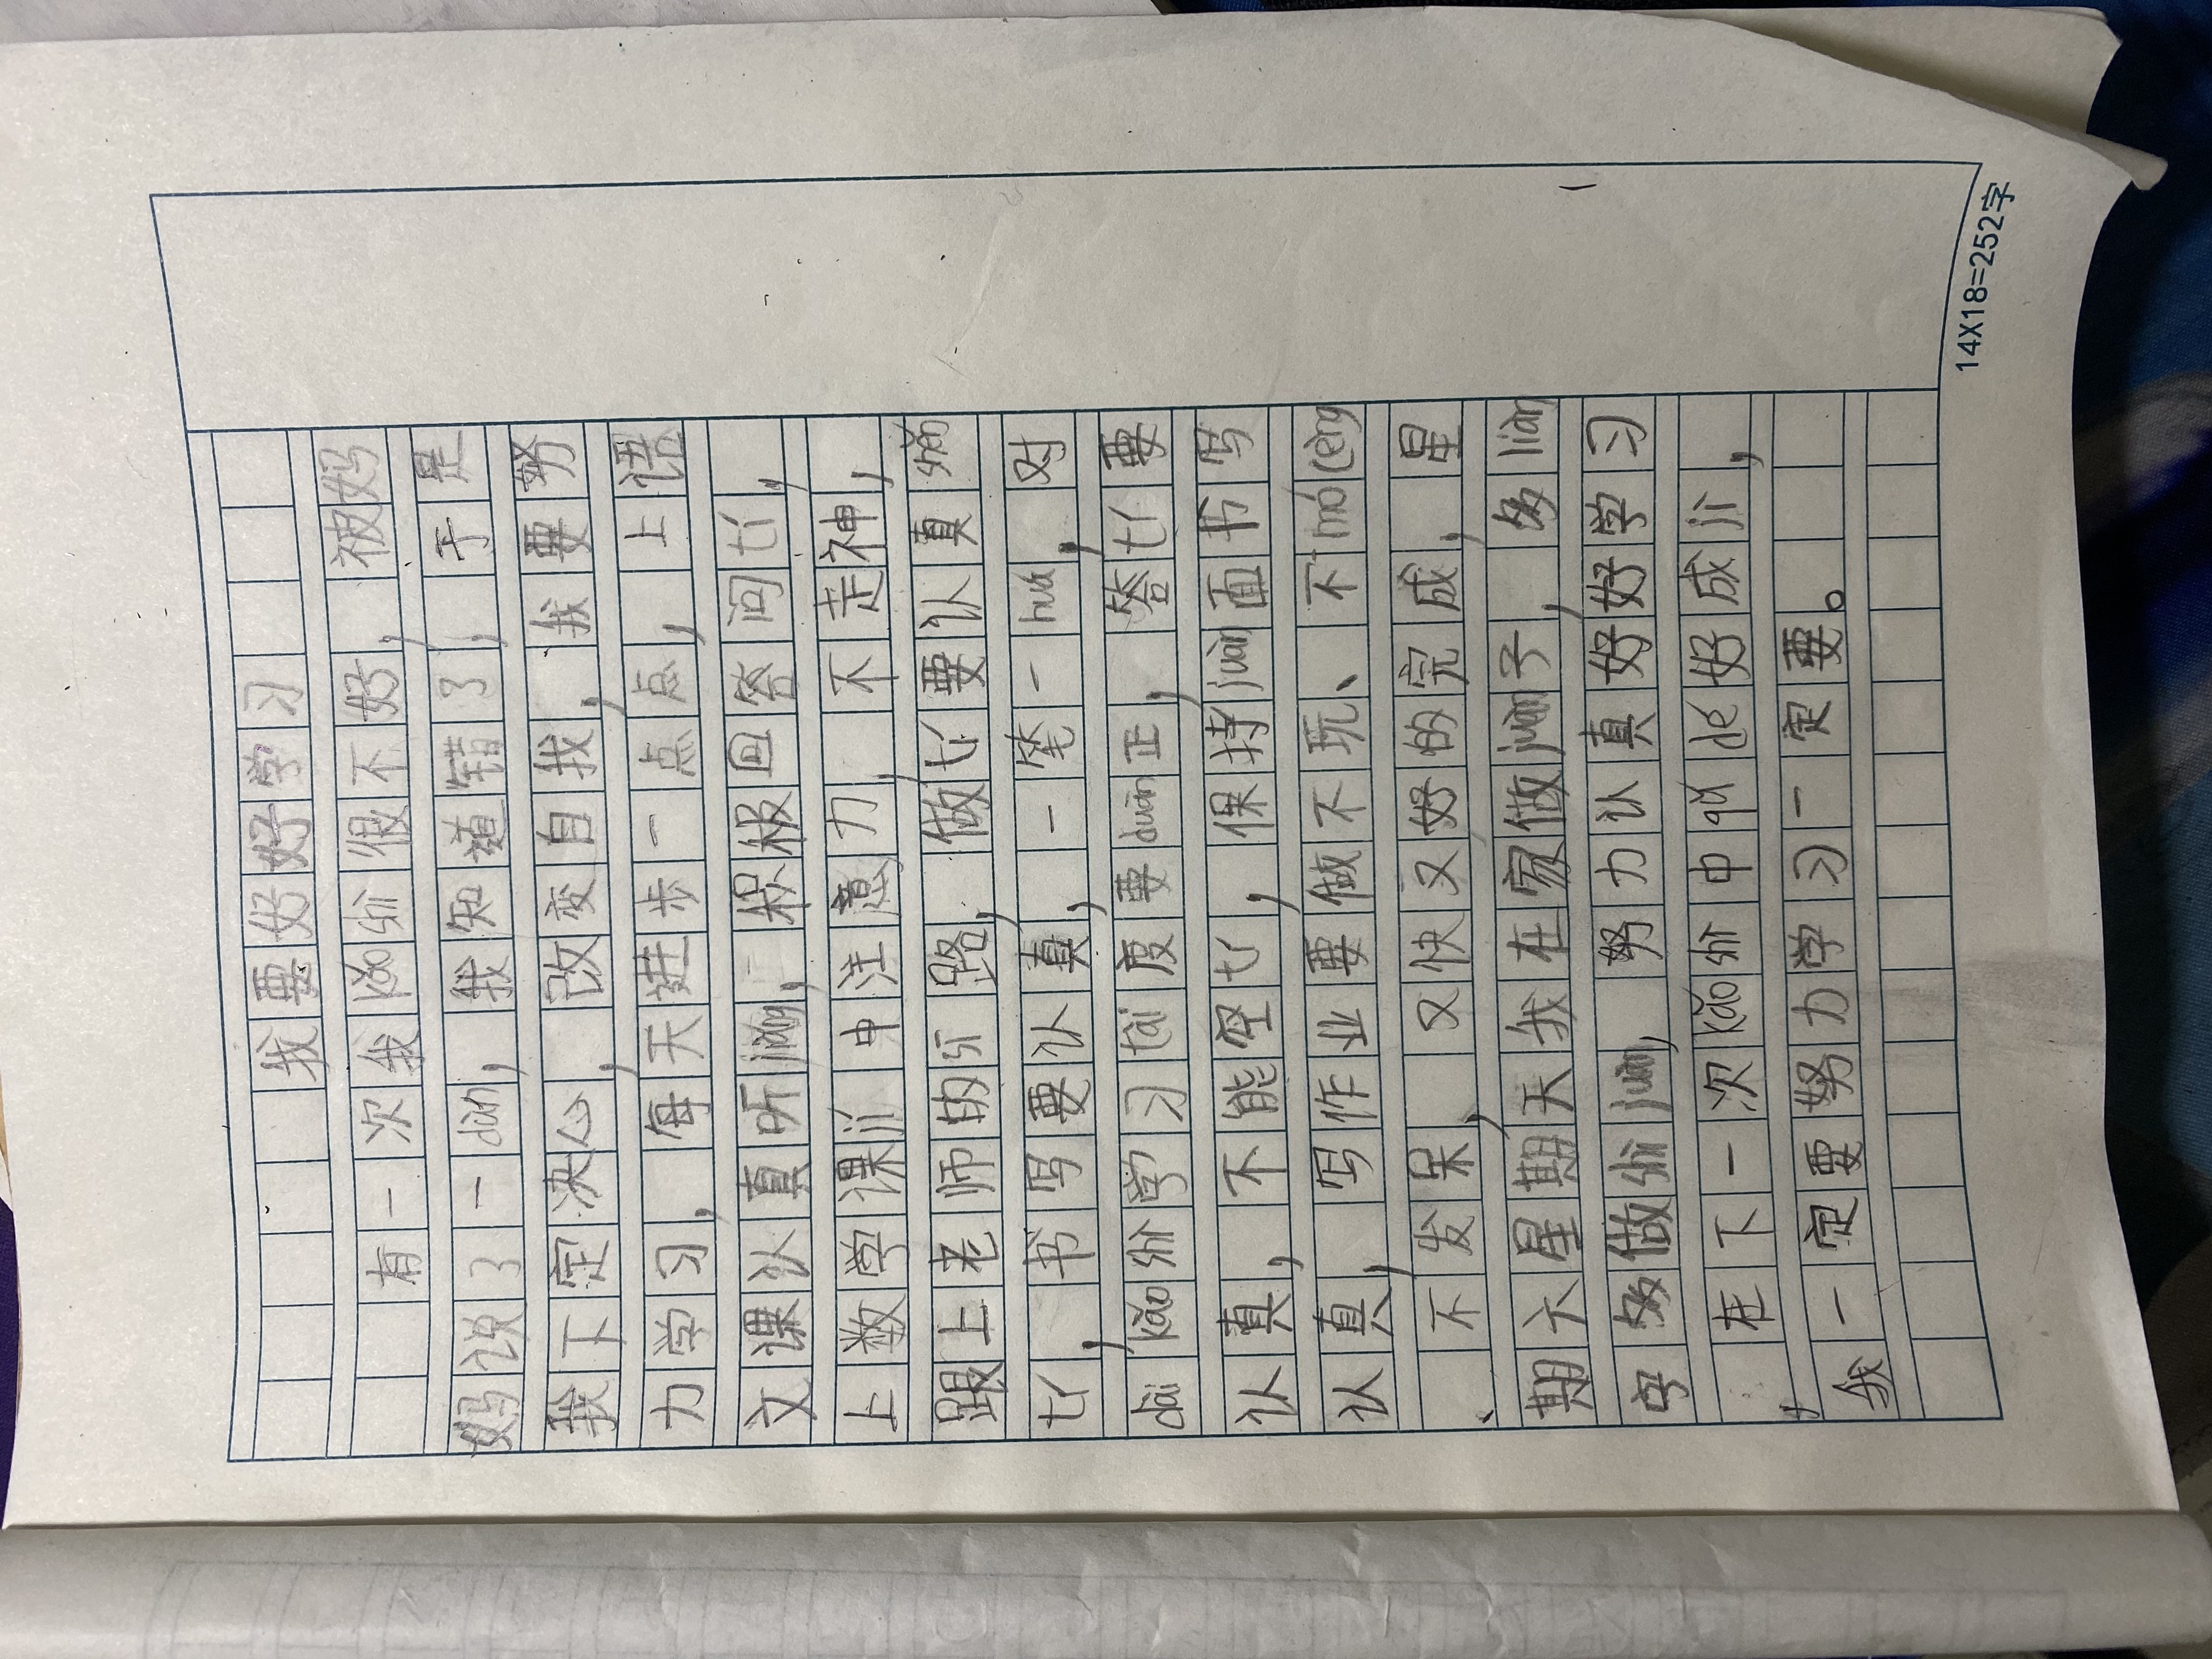 我要好好学习
有一次我kǎo shì很不好，被妈
妈说了一dùn，我知道错了，于是
我下定决心，改变自我，我要努
力学习，每天进步一点点，上语
文课认真听jiǎng，积极回答问tí，
上数学课jí中注意力，不走神，
跟上老师的sī路，做tí要认真
tí，书写要认真，一笔一huá，对
dài kǎo shì学习tài度要duān正，答tí要
认真，不能空tí，保持juàn面书写
认真，写作业要做不玩、不mó cèng
、不发呆，又快又好的完成，星
期六星期天我在家做juàn子，多liàn
字多做shì juàn，努力认真好好学习
，在下一次kǎo shì中qǔ dé好成jì，
我一定要努力学习一定要。
14X18=252字